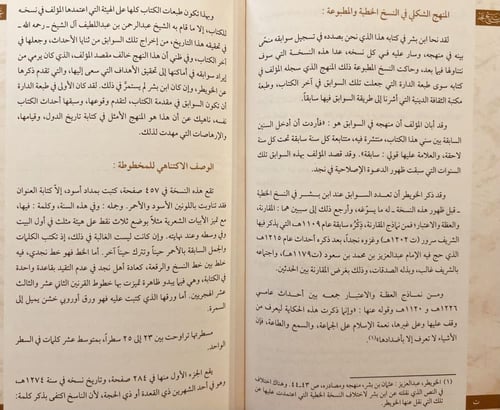 المنهج الشكلي في النسخ الخطية والمطبوعة :
لقد نحا ابن بشر في كتابه هذا الذي نحن بصدده في تسجيل سوابقه منحًى
بيّنه في منهجه، وسار عليه في كل نسخه، عدا هذه النسخة التي سوف
نتناولها فيما بعد، وحاكت النسخ المطبوعة ذلك المنهج الذي سجله المؤلف في
كتابه سوى طبعة الدارة التي جعلت تلك السوابق في آخر الكتاب، وطبعة
مكتبة الثقافة الدينية التي أشرنا إلى طريقة السوابق فيها سابقاً.
وقد أبان المؤلف أن منهجه في السوابق هو : «فأردت أن أدخل السنين
السابقة بين سني هذا الكتاب، منتشرة فيه، متتابعة كل سنة سابقة تحت كل سنة
لاحقة، والعلامة عليها قولي : سابقة». وقد قصد المؤلف بهذه السوابق تلك
السنوات التي سبقت ظهور الدعوة الإصلاحية في نجد.
وقد ذكر الخويطر أن تعدد السوابق عند ابن بشر في النسخ الخطية
ـ قبل ظهور هذه النسخة ـ له ما يسوّغه، وأرجع ذلك إلى سببين هما : المقارنة،
والعظة والاعتبار؛ فمن نماذج المقارنة، ذِكْرُه سابقة عام ١١٠٩هـ التي يذكر فيها
الشريف سرور (ت ١٢٠٢هـ) وغزوه نجداً، بعد ذكره أحداث عام ١٢١٥هـ
الذي حج فيه الإمام عبدالعزيز بن محمد بن سعود (ت ١١٧٩هـ)، واجتماعه
بالشريف غالب، وبذله الصدقات، وذلك بغرض المقارنة بين الحدثين.
ومن نماذج العظة والاعتبار جمعه بين أحداث عامي
١٢٢٦هـ و ١١٢٠هـ ، وقوله عنها : «وإنما ذكرت هذه الحكاية ليعرف من
وقف عليها وعلى غيرها، نعمة الإسلام على الجماعة، والسمع والطاعة، فإن
الأشياء لا تعرف إلا بأضدادها»(١).
(١) الخويطر، عبدالعزيز: عثمان بن بشر، منهجه ومصادره، ص ٤٣ـ٤٤. وهناك اختلاف
في النص الذي نقلته عن ابن بشر لاختلاف النسخة الخطية التي اعتمدت عليها عن
تلك التي نقل عنها الخويطر.
ت
وبهذا تكون طبعات الكتاب كلها على الهيئة التي اعتمدها المؤلف في نسخه
للكتاب، إلا ما قام به الشيخ عبدالرحمن بن عبداللطيف آل الشيخ ـ رحمه الله ـ
في تحقيقه هذا التاريخ، من إخراج تلك السوابق من ثنايا الأحداث، وجعلها في
آخر الكتاب، وفي ظني أن هذا النهج خالف مقصد المؤلف، الذي كان يرمي من
إيراد سوابقه في أماكنها إلى تحقيق الأهداف التي سعى إليها، والتي تقدم ذكرها
عن الخويطر، وإن كان ابن بشر لم يستمرَّ في ذلك. لقد كان الأولى في طبعة الدارة
أن تكون السوابق في مقدمة الكتاب، لتقدم وقوعها، وسبقها أحداث الكتاب
نفسه، ناهيك عن أن هذا هو المنهج الأمثل في كتابة تاريخ الدول، وقيامها،
والإرهاصات التي مهدت لذلك.
الوصف الاكتناهي للمخطوطة :
تقع هذه النسخة في ٤٥٧ صفحة، كتبت بمداد أسود، إلا كتابة العنوان
فقد تفاوتت باللونين الأسود والأحمر. وجملة : وفي هذه السنة، وكلمة : فيها،
مع تمييز الأبيات الشعرية مثلاً بوضع ثلاث نقط على هيئة مثلث في أول البيت
وفي وسطه وعند نهايته. وإن كانت ليست الغالبة في ذلك، إذ تكتب الكلمات
والجمل السابقة بالأحمر حيناً وتترك حيناً آخر. أما الخط فهو خط نجدي، فيه
خلط بين خط النسخ والرقعة، كعادة أهل نجد في عدم التقيد بقاعدة واحدة
في الكتابة، وهي فيما يبدو ظاهرة تميزت بها خطوط القرنين الثاني عشر والثالث
عشر الهجريين. أما ورقها الذي كتبت عليه فهو ورق أوروبي خشن يميل إلى
السمرة.
مسطرتها تراوحت بين ٢٣ إلى ٢٥ سطراً، بمتوسط عشر كلمات في السطر
الواحد.
يقع الجزء الأول منها في ٢٨٤ صفحة، وتاريخ نسخه في سنة ١٢٧٤هـ،
وهو في أحد الشهرين ذي القعدة أو ذي الحجة، لأن الناسخ اكتفى بذكر كلمة: